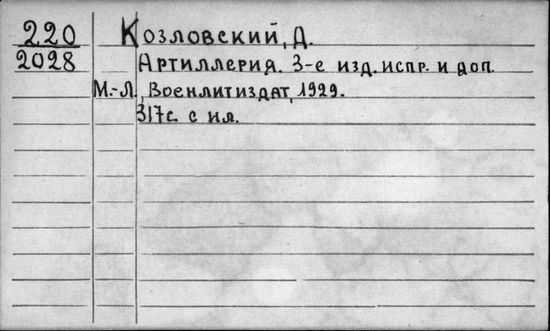 220 Козловский, Д.
2028 Артиллерия. 3-е изд. испр. и доп.
М.-Л., Военлитиздат, 1929.
317с. с ил.